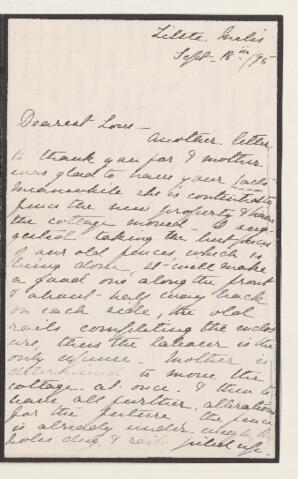 Sept. 18th /95
Dearest Love -
Another letter
to thank you for, & mother
was glad to have your
Meanwhile she is
fence the new property & have
the cottage moved - I sug-
gested taking the best
of our old fence, which is
being done, it will make
a good one along the front
& about half way back
on each side, the old
rails completing the enclos
ure, thus the labour is the
only expense. Mother is
determined to move the
cottage at once, & then to
have all further alterations
for the future - the fence
is already under weigh,
holes dug & rails piled up.